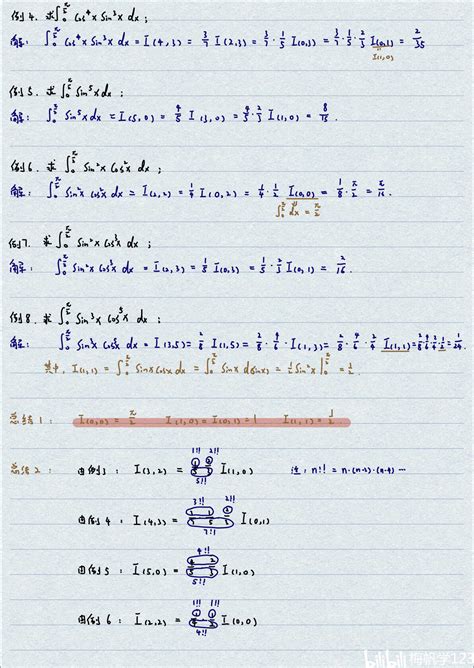 例4. 求∫₀^(π/2) cos⁴x sin³x dx ;
解: ∫₀^(π/2) cos⁴x sin³x dx = I(4,3) = 3/7 I(2,3) = 3/7·1/5 I(0,3) = 3/7·1/5·2/3 I(0,1) = 2/35
I(1,0)
例5. 求∫₀^(π/2) sin⁵x dx ;
解: ∫₀^(π/2) sin⁵x dx = I(5,0) = 4/5 I(3,0) = 4/5·2/3 I(1,0) = 8/15.
例6. 求∫₀^(π/2) sin²x cos²x dx ;
解: ∫₀^(π/2) sin²x cos²x dx = I(2,2) = 1/4 I(0,2) = 1/4·1/2 I(0,0) = 1/8·π/2 = π/16.
∫₀^(π/2) dx = π/2
例7. 求∫₀^(π/2) sin²x cos³x dx ;
解: ∫₀^(π/2) sin²x cos³x dx = I(2,3) = 1/5 I(0,3) = 1/5·2/3 I(0,1) =
例8. 求∫₀^(π/2) sin³x cos⁵x dx ;
解: ∫₀^(π/2) sin³x cos⁵x dx = I(3,5) = 2/8 I(1,5) = 2/8·4/6·I(1,3) = 2/8·4/6·2/4 I(1,1) = 2/8·4/6·2/4·1/2 = 1/24
其中, I(1,1) = ∫₀^(π/2) sinx cosx dx = ∫₀^(π/2) sinx d(sinx) = 1/2 sin²x |₀^(π/2) = 1/2.
总结1: I(0,0) = π/2 I(1,0) = I(0,1) = 1 I(1,1) = 1/2.
1!! 2!!
总结2: 由例3: I(3,2) = I(1,0) 注: n!! = n·(n-2)·(n-4) ···
5!!
3!! 2!!
由例4: I(4,3) = I(0,1)
7!!
4!!
由例5: I(5,0) = I(1,0)
5!!
1!! 1!!
由例6: I(2,2) = I(0,0)
4!!
bilibili 梅帆学123